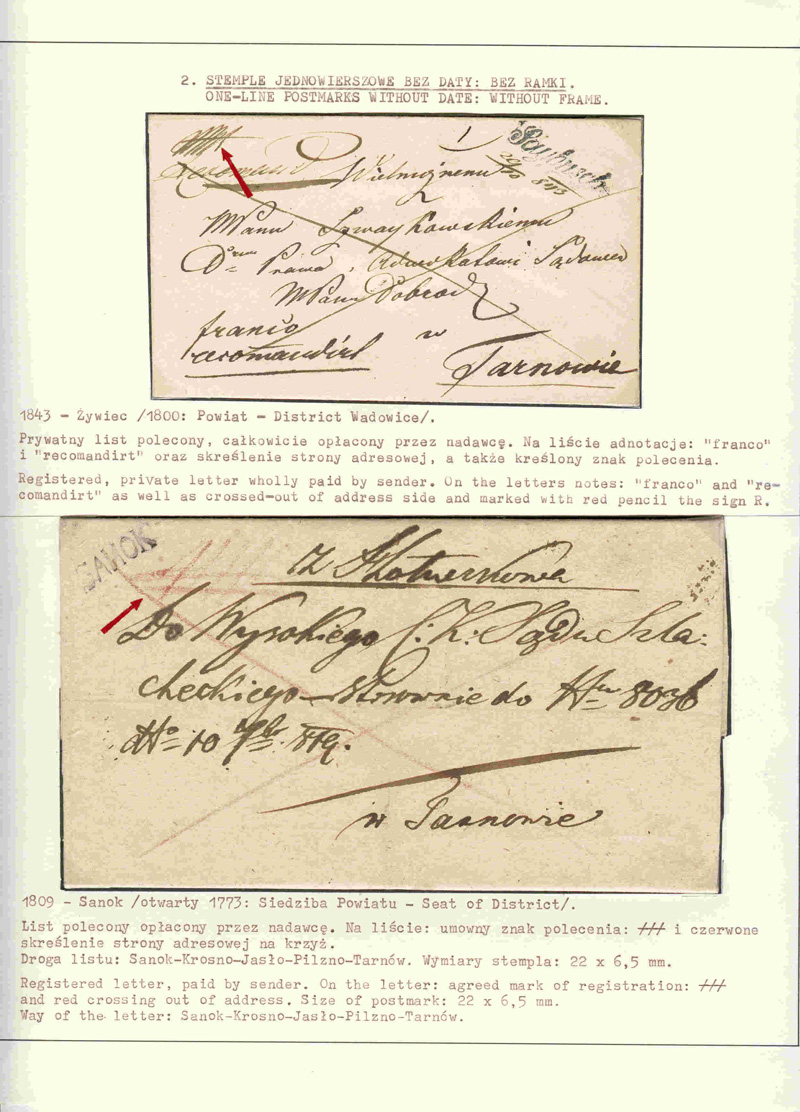 2. STEMPLE JEDNOWIERSZOWE BEZ DATY: BEZ RAMKI.
ONE-LINE POSTMARKS WITHOUT DATE: WITHOUT FRAME.
1
Saybusch
Wielmożnemu
WPanu
Drowi Prawa, Adwokatowi Sądowem
WPanu Dobrodz
franco
recomandirt
w
Tarnowie
1843 - Żywiec /1800: Powiat - District Wadowice/.
Prywatny list polecony, całkowicie opłacony przez nadawcę. Na liście adnotacje: "franco"
i "recomandirt" oraz skreślenie strony adresowej, a także kreślony znak polecenia.
Registered, private letter wholly paid by sender. On the letters notes: "franco" and "re-
comandirt" as well as crossed-out of address side and marked with red pencil the sign R.
SANOK
Do Wysokiego C: K: Sądu Szla:
checkiego
w Tarnowie
1809 - Sanok /otwarty 1773: Siedziba Powiatu - Seat of District/.
List polecony opłacony przez nadawcę. Na liście: umowny znak polecenia: /// i czerwone
skreślenie strony adresowej na krzyż.
Droga listu: Sanok-Krosno-Jasło-Pilzno-Tarnów. Wymiary stempla: 22 x 6,5 mm.
Registered letter, paid by sender. On the letter: agreed mark of registration: ///
and red crossing out of address. Size of postmark: 22 x 6,5 mm.
Way of the letter: Sanok-Krosno-Jasło-Pilzno-Tarnów.